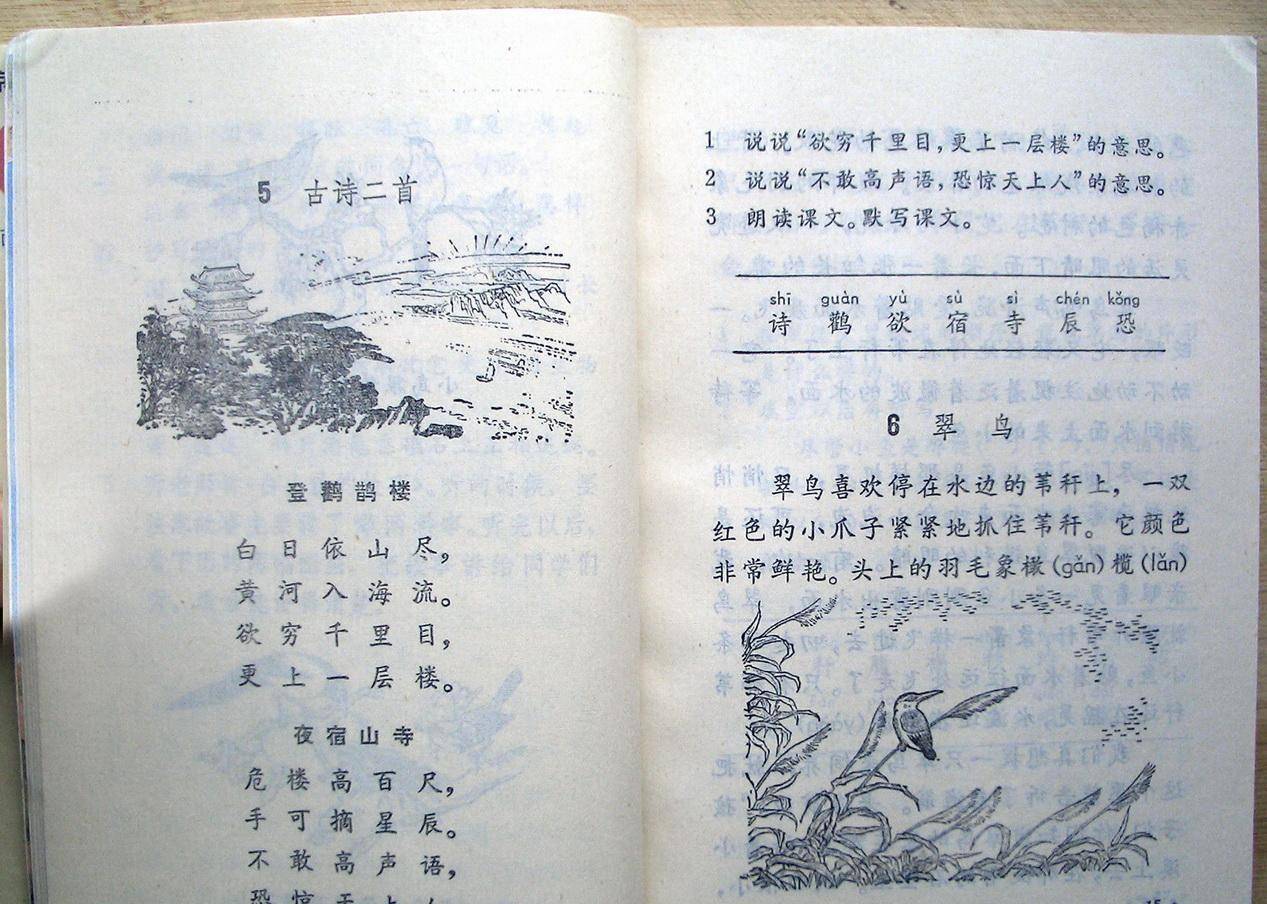 5 古诗二首
登鹳鹊楼
白日依山尽，
黄河入海流。
欲穷千里目，
更上一层楼。
夜宿山寺
危楼高百尺，
手可摘星辰。
不敢高声语，
恐惊天上人
1 说说“欲穷千里目，更上一层楼”的意思。
2 说说“不敢高声语，恐惊天上人”的意思。
3 朗读课文。默写课文。
shī guàn yù sù sì chén kǒng
诗 鹳 欲 宿 寺 辰 恐
6 翠鸟
翠鸟喜欢停在水边的苇秆上，一双
红色的小爪子紧紧地抓住苇秆。它颜色
非常鲜艳。头上的羽毛象橄(gǎn)榄(lǎn)